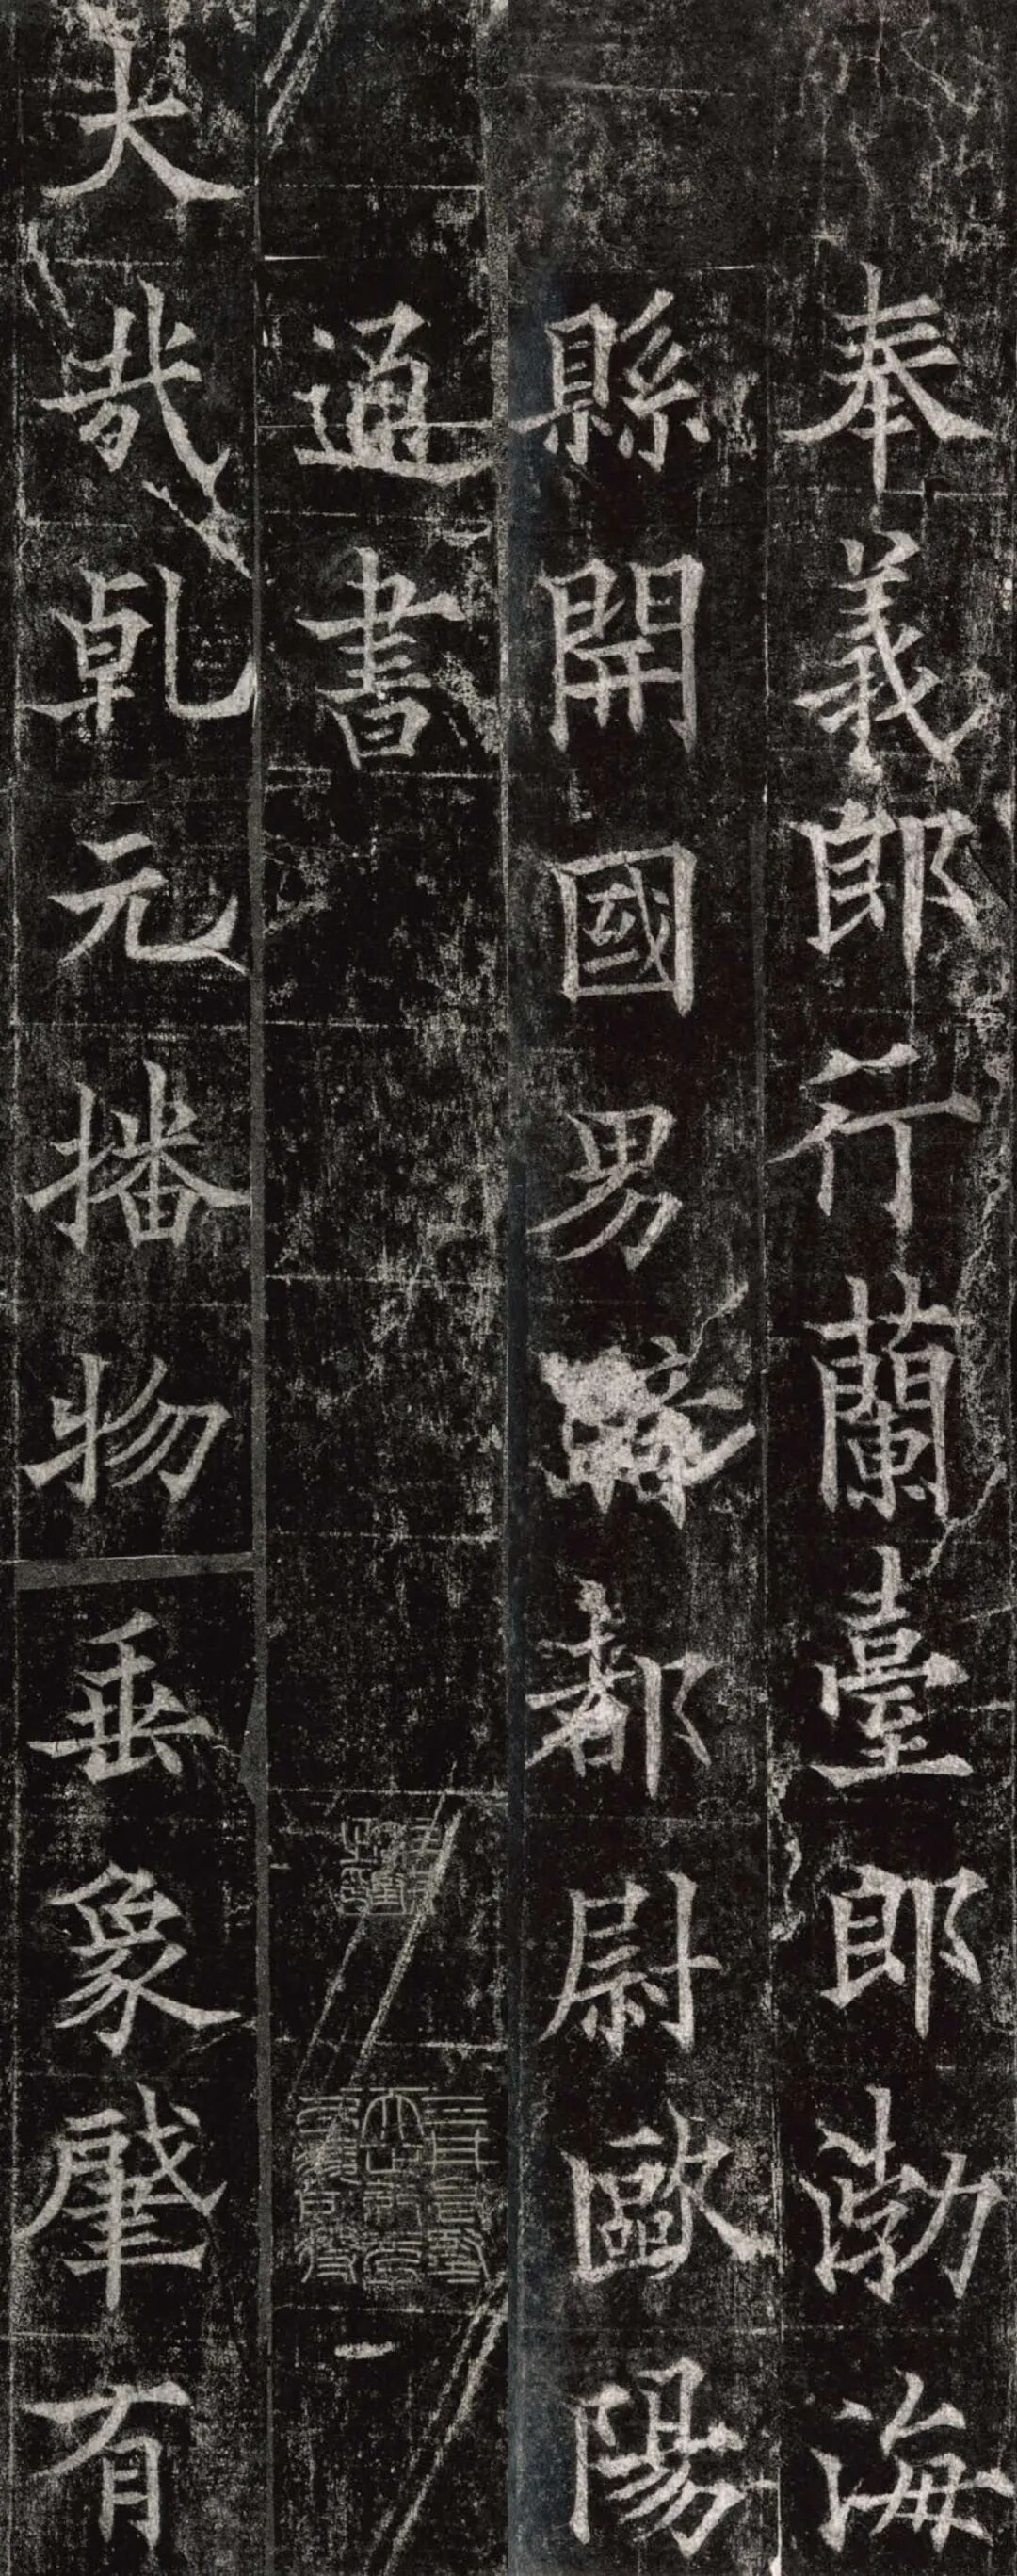 奉義郎行蘭臺郎渤海
縣開國男騎都尉歐陽
通書
大哉乾元播物垂象肇有